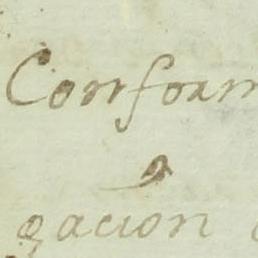 Conform
gacion